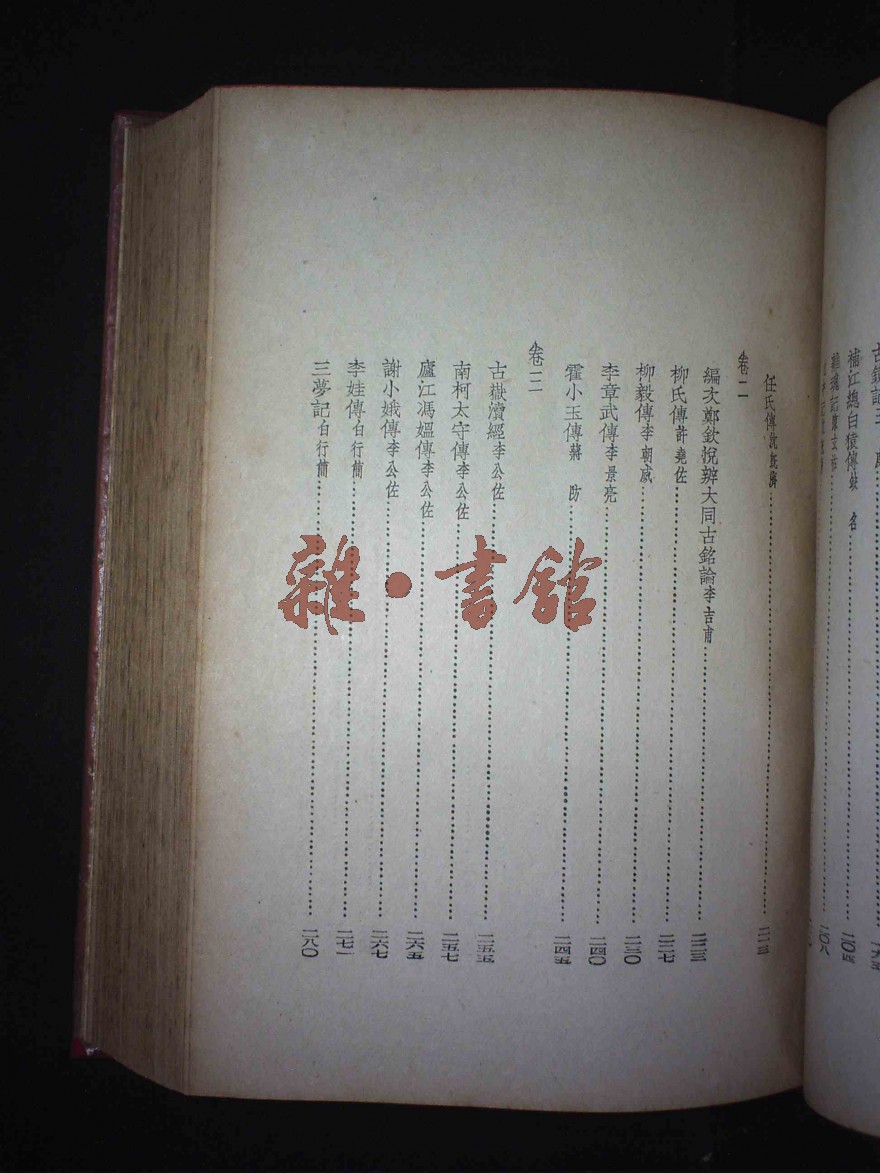 補江總白猿傳缺 名……二〇四
離魂記陳玄祐……二〇八
任氏傳沈既濟……二一三
卷二
編次鄭欽悅辨大同古銘論李吉甫……二二三
柳氏傳許堯佐……二二七
柳毅傳李朝威……二三〇
李章武傳李景亮……二四〇
霍小玉傳蔣 防……二四五
卷三
古嶽瀆經李公佐……二五五
南柯太守傳李公佐……二五七
廬江馮媼傳李公佐……二六五
謝小娥傳李公佐……二六七
李娃傳白行簡……二七一
三夢記白行簡……二八〇
雜·書館